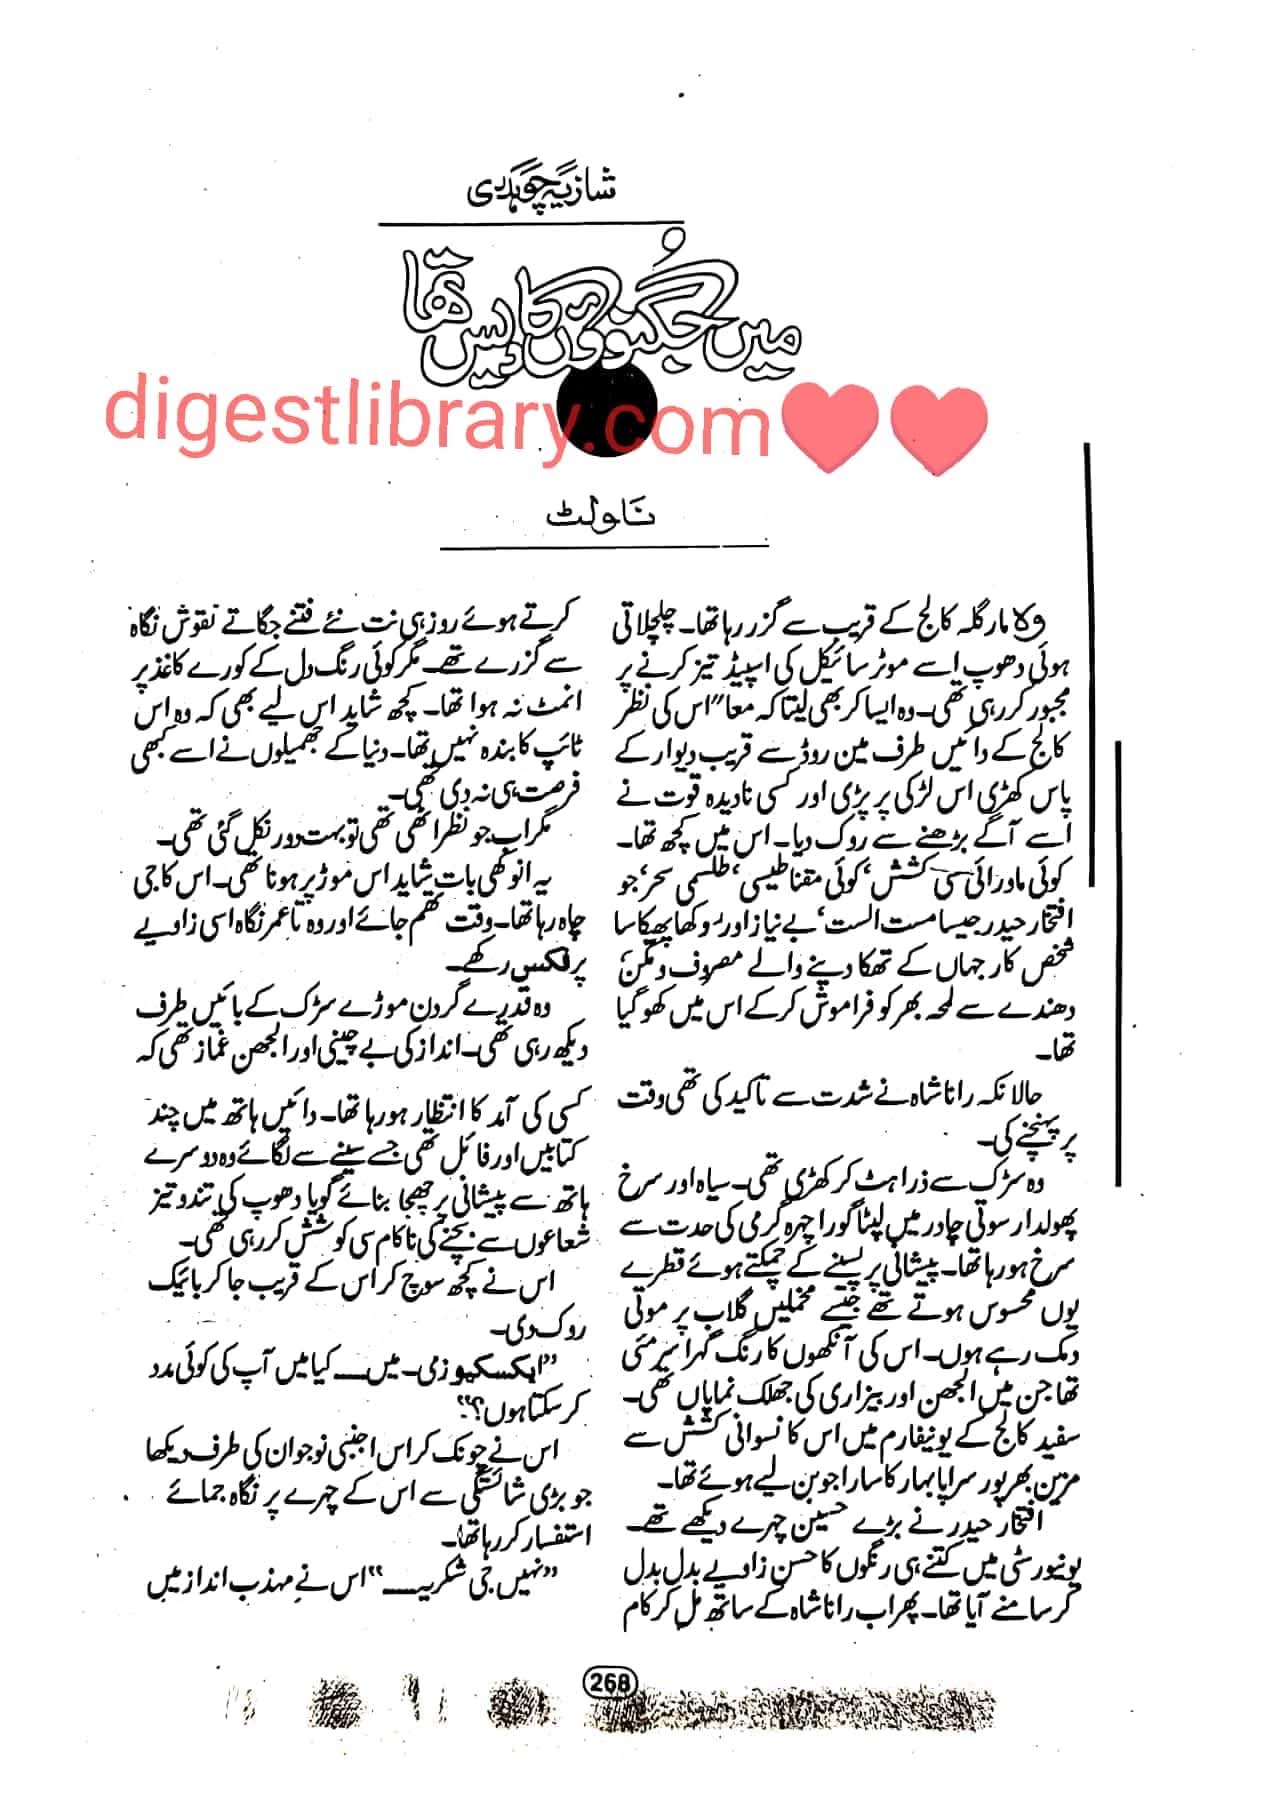 شازیہ چوہدری
میں جگنوؤں کا دیس تھا
digestlibrary.com
ناولٹ
وہ مارگلہ کالج کے قریب سے گزر رہا تھا۔ چلچلاتی
ہوئی دھوپ اسے موٹر سائیکل کی اسپیڈ تیز کرنے پر
مجبور کر رہی تھی۔ وہ ایسا کر بھی لیتا کہ معا" اس کی نظر
کالج کے دائیں طرف مین روڈ سے قریب دیوار کے
پاس کھڑی اس لڑکی پر پڑی اور کسی نادیدہ قوت نے
اسے آگے بڑھنے سے روک دیا۔ اس میں کچھ تھا۔
کوئی ماورائی سی کشش، کوئی مقناطیسی، طلسمی سحر، جو
افتخار حیدر جیسا مست الست، بے نیاز اور روکھا پھیکا سا
شخص کار جہاں کے تھکا دینے والے مصروف و مگن
دھندے سے لمحہ بھر کو فراموش کر کے اس میں کھو گیا
تھا۔
حالانکہ رانا شاہ نے شدت سے تاکید کی تھی وقت
پر پہنچنے کی۔
وہ سڑک سے ذرا ہٹ کر کھڑی تھی۔ سیاہ اور سرخ
پھولدار سوتی چادر میں لپٹا گورا چہرہ گرمی کی حدت سے
سرخ ہو رہا تھا۔ پیشانی پر پسینے کے چمکتے ہوئے قطرے
یوں محسوس ہوتے تھے جیسے مخملیں گلاب پر موتی
دمک رہے ہوں۔ اس کی آنکھوں کا رنگ گہرا سرمئی
تھا جن میں الجھن اور بیزاری کی جھلک نمایاں تھی۔
سفید کالج کے یونیفارم میں اس کا نسوانی کشش سے
مزین بھرپور سراپا بہار کا سارا جوبن لیے ہوئے تھا۔
افتخار حیدر نے بڑے حسین چہرے دیکھے تھے۔
یونیورسٹی میں کتنے ہی رنگوں کا حسن زاویے بدل بدل
کر سامنے آیا تھا۔ پھر اب رانا شاہ کے ساتھ مل کر کام
کرتے ہوئے روز ہی نت نئے فتنے جگاتے نقوش نگاہ
سے گزرے تھے۔ مگر کوئی رنگ دل کے کورے کاغذ پر
انمٹ نہ ہوا تھا۔ کچھ شاید اس لیے بھی کہ وہ اس
ٹائپ کا بندہ نہیں تھا۔ دنیا کے جھمیلوں نے اسے کبھی
فرصت ہی نہ دی تھی۔
مگر اب جو نظر اٹھی تھی تو بہت دور نکل گئی تھی۔
یہ انوکھی بات شاید اس موڑ پر ہونا تھی۔ اس کا جی
چاہ رہا تھا۔ وقت تھم جائے اور وہ تا عمر نگاہ اسی زاویے
پر فکس رکھے۔
وہ قدرے گردن موڑے سڑک کے بائیں طرف
دیکھ رہی تھی۔ انداز کی بے چینی اور الجھن غماز تھی کہ
کسی کی آمد کا انتظار ہو رہا تھا۔ دائیں ہاتھ میں چند
کتابیں اور فائل تھی جسے سینے سے لگائے وہ دوسرے
ہاتھ سے پیشانی پر چھجا بنائے گویا دھوپ کی تند و تیز
شعاعوں سے بچنے کی ناکام سی کوشش کر رہی تھی۔
اس نے کچھ سوچ کر اس کے قریب جا کر بائیک
روک دی۔
"ایکسکیوزمی۔ میں ــــ کیا میں آپ کی کوئی مدد
کر سکتا ہوں؟"
اس نے چونک کر اس اجنبی نوجوان کی طرف دیکھا
جو بڑی شائستگی سے اس کے چہرے پر نگاہ جمائے
استفسار کر رہا تھا۔
"نہیں جی شکریہ ــــ" اس نے مہذب انداز میں
268